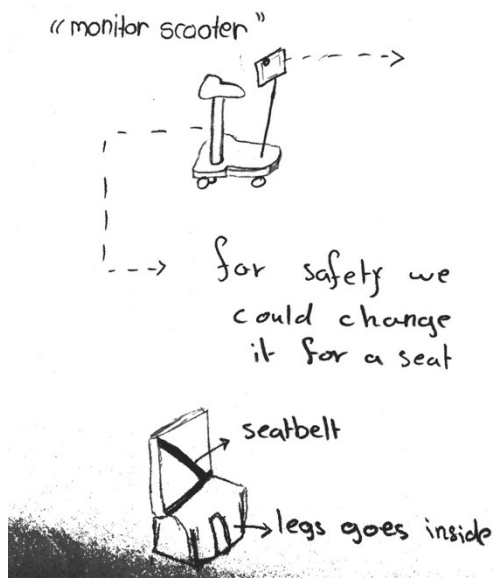 “monitor scooter”
for safety we
could change
it for a seat
seatbelt
legs goes inside